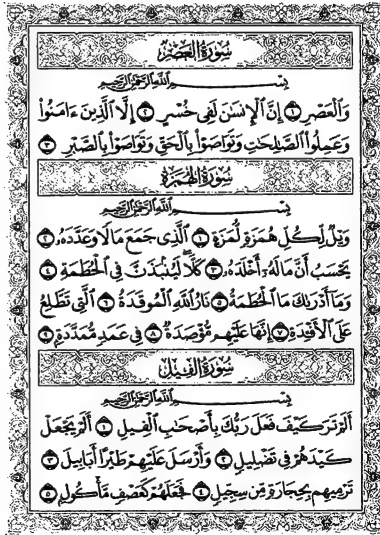 سُورَةُ العَصْرِ
بِسْمِ اللَّهِ الرَّحْمَٰنِ الرَّحِيمِ
وَالْعَصْرِ ١ إِنَّ الْإِنسَٰنَ لَفِى خُسْرٍ ٢ إِلَّا الَّذِينَ ءَامَنُوا۟
وَعَمِلُوا۟ الصَّٰلِحَٰتِ وَتَوَاصَوْا۟ بِالْحَقِّ وَتَوَاصَوْا۟ بِالصَّبْرِ ٣
سُورَةُ الهُمَزَةِ
بِسْمِ اللَّهِ الرَّحْمَٰنِ الرَّحِيمِ
وَيْلٌ لِّكُلِّ هُمَزَةٍ لُّمَزَةٍ ١ الَّذِى جَمَعَ مَالًا وَعَدَّدَهُۥ ٢
يَحْسَبُ أَنَّ مَالَهُۥٓ أَخْلَدَهُۥ ٣ كَلَّا ۖ لَيُنۢبَذَنَّ فِى الْحُطَمَةِ ٤
وَمَآ أَدْرَىٰكَ مَا الْحُطَمَةُ ٥ نَارُ اللَّهِ الْمُوقَدَةُ ٦ الَّتِى تَطَّلِعُ
عَلَى الْأَفْـِٔدَةِ ٧ إِنَّهَا عَلَيْهِم مُّؤْصَدَةٌ ٨ فِى عَمَدٍ مُّمَدَّدَةٍۭ ٩
سُورَةُ الفِيلِ
بِسْمِ اللَّهِ الرَّحْمَٰنِ الرَّحِيمِ
أَلَمْ تَرَ كَيْفَ فَعَلَ رَبُّكَ بِأَصْحَٰبِ الْفِيلِ ١ أَلَمْ يَجْعَلْ
كَيْدَهُمْ فِى تَضْلِيلٍ ٢ وَأَرْسَلَ عَلَيْهِمْ طَيْرًا أَبَابِيلَ ٣
تَرْمِيهِم بِحِجَارَةٍ مِّن سِجِّيلٍ ٤ فَجَعَلَهُمْ كَعَصْفٍ مَّأْكُولٍۭ ٥